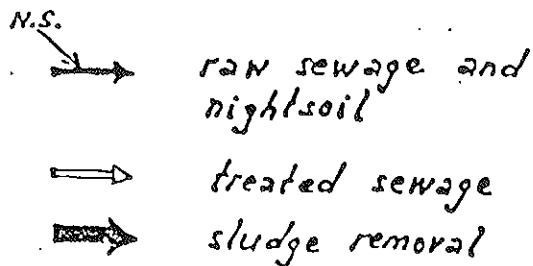 N.S.
raw sewage and
nightsoil
treated sewage
sludge removal